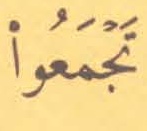 تَجْمَعُواْ